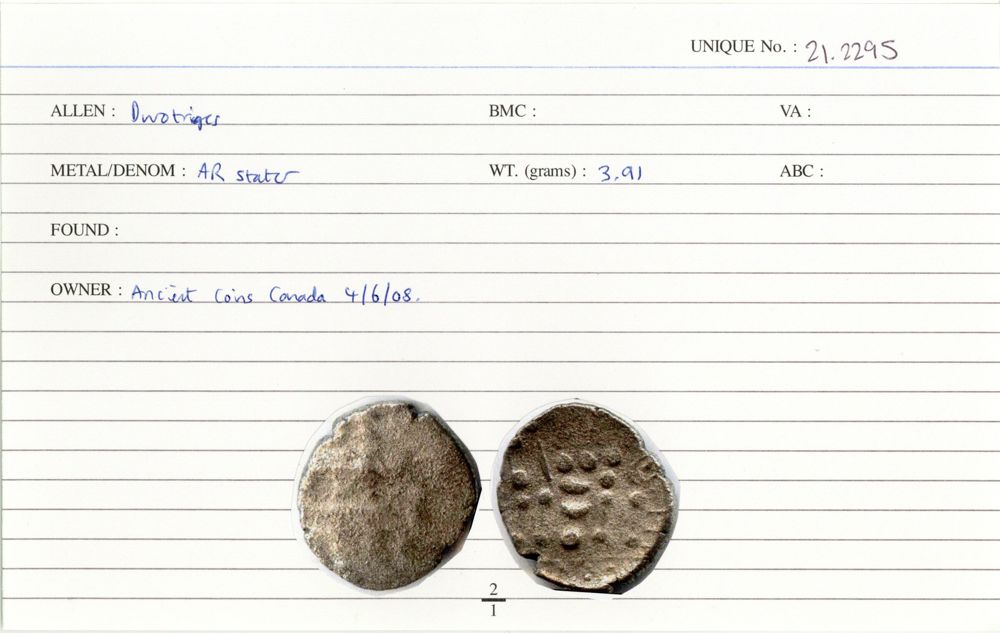 UNIQUE No. : 21.2295
ALLEN : Durotriges BMC : VA :
METAL/DENOM : AR stater WT. (grams) : 3.91 ABC :
FOUND :
OWNER : Ancient Coins Canada 4/6/08.
2
1